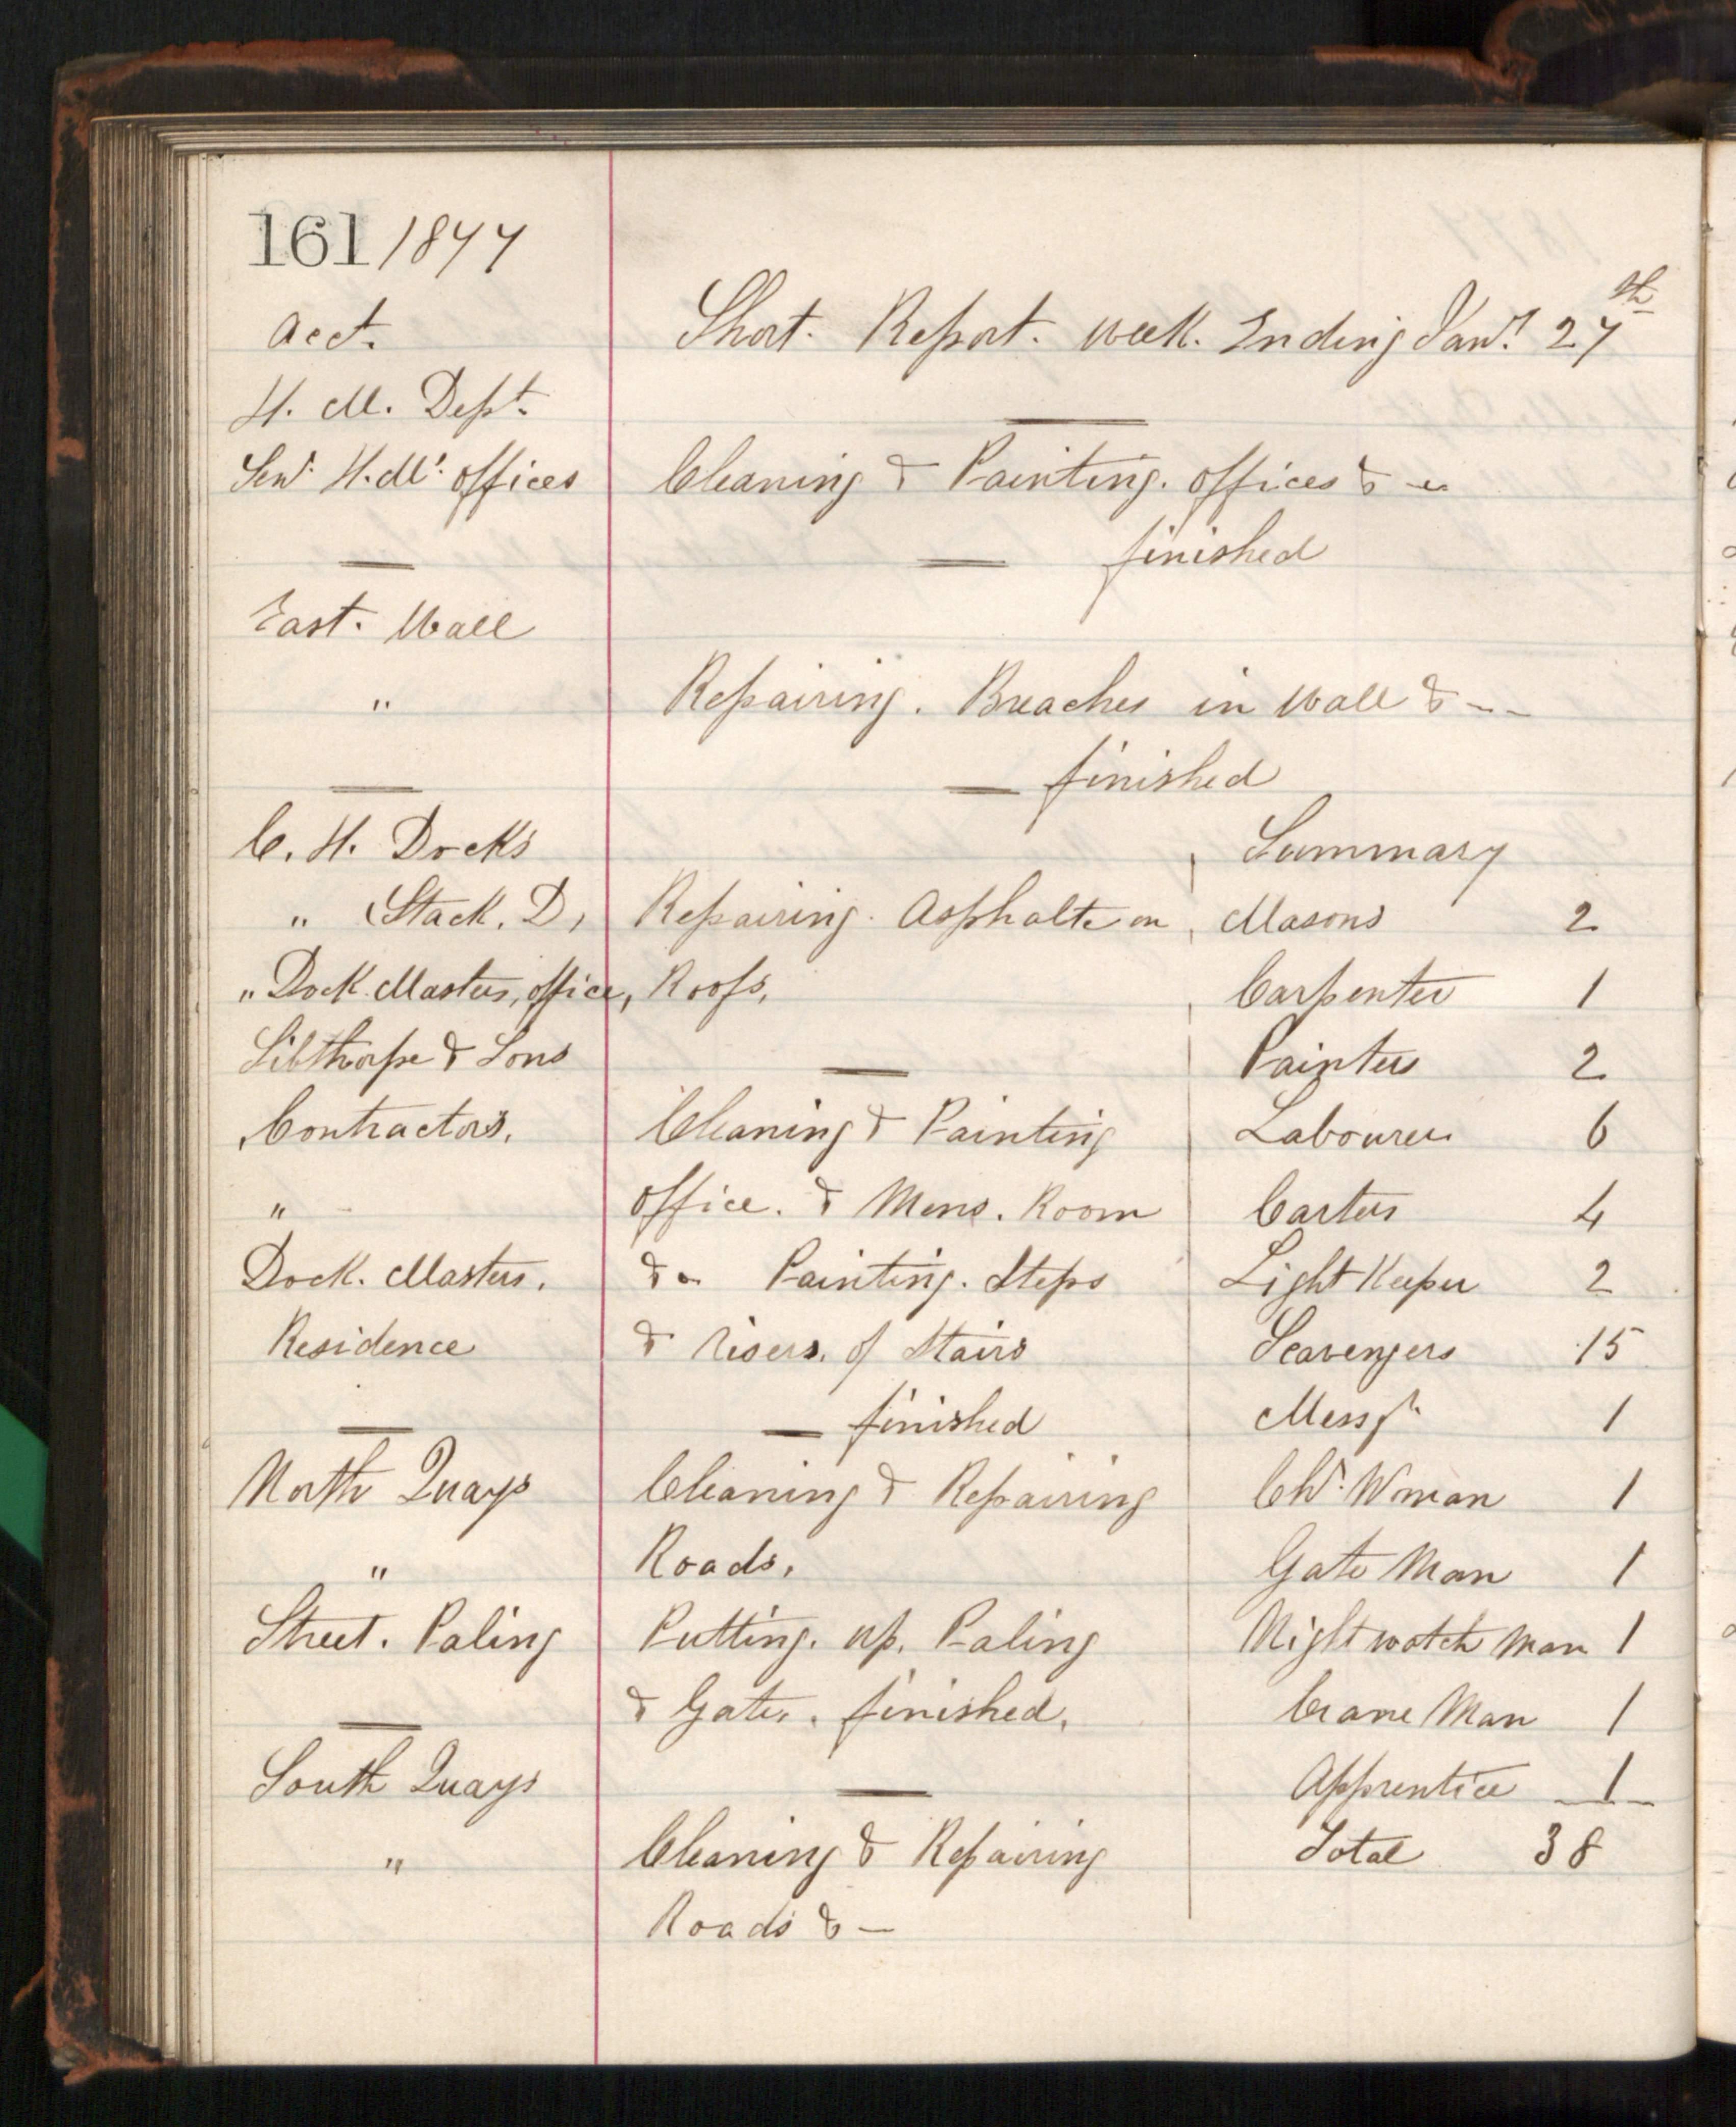 161 1877
Acct. Short. Report. Week. Ending Jany. 27th
H. M. Dept.
Senr. H. Mr. offices Cleaning & Painting. offices &c
finished
East. Wall
" Repairing. Breaches in Wall & --
finished
C. H. Docks Summary
" Stack. D, Repairing. Asphalte on Masons 2
" Dock Masters, office, Roofs, Carpenter 1
Sibthorpe & Sons Painters 2
Contractors, Cleaning & Painting Labourers 6
" office. & Mens. Room Carters 4
Dock. Masters. &c Painting. Steps Light Keeper 2
Residence & Risers. of Stairs Scavengers 15
finished Messgr. 1
North Quays Cleaning & Repairing Chr. Woman 1
" Roads, Gate Man 1
Street. Paling Putting. up. Paling Night watch man 1
& Gates. finished, Crane Man 1
South Quays Apprentice 1
" Cleaning & Repairing Total 38
Roads & —